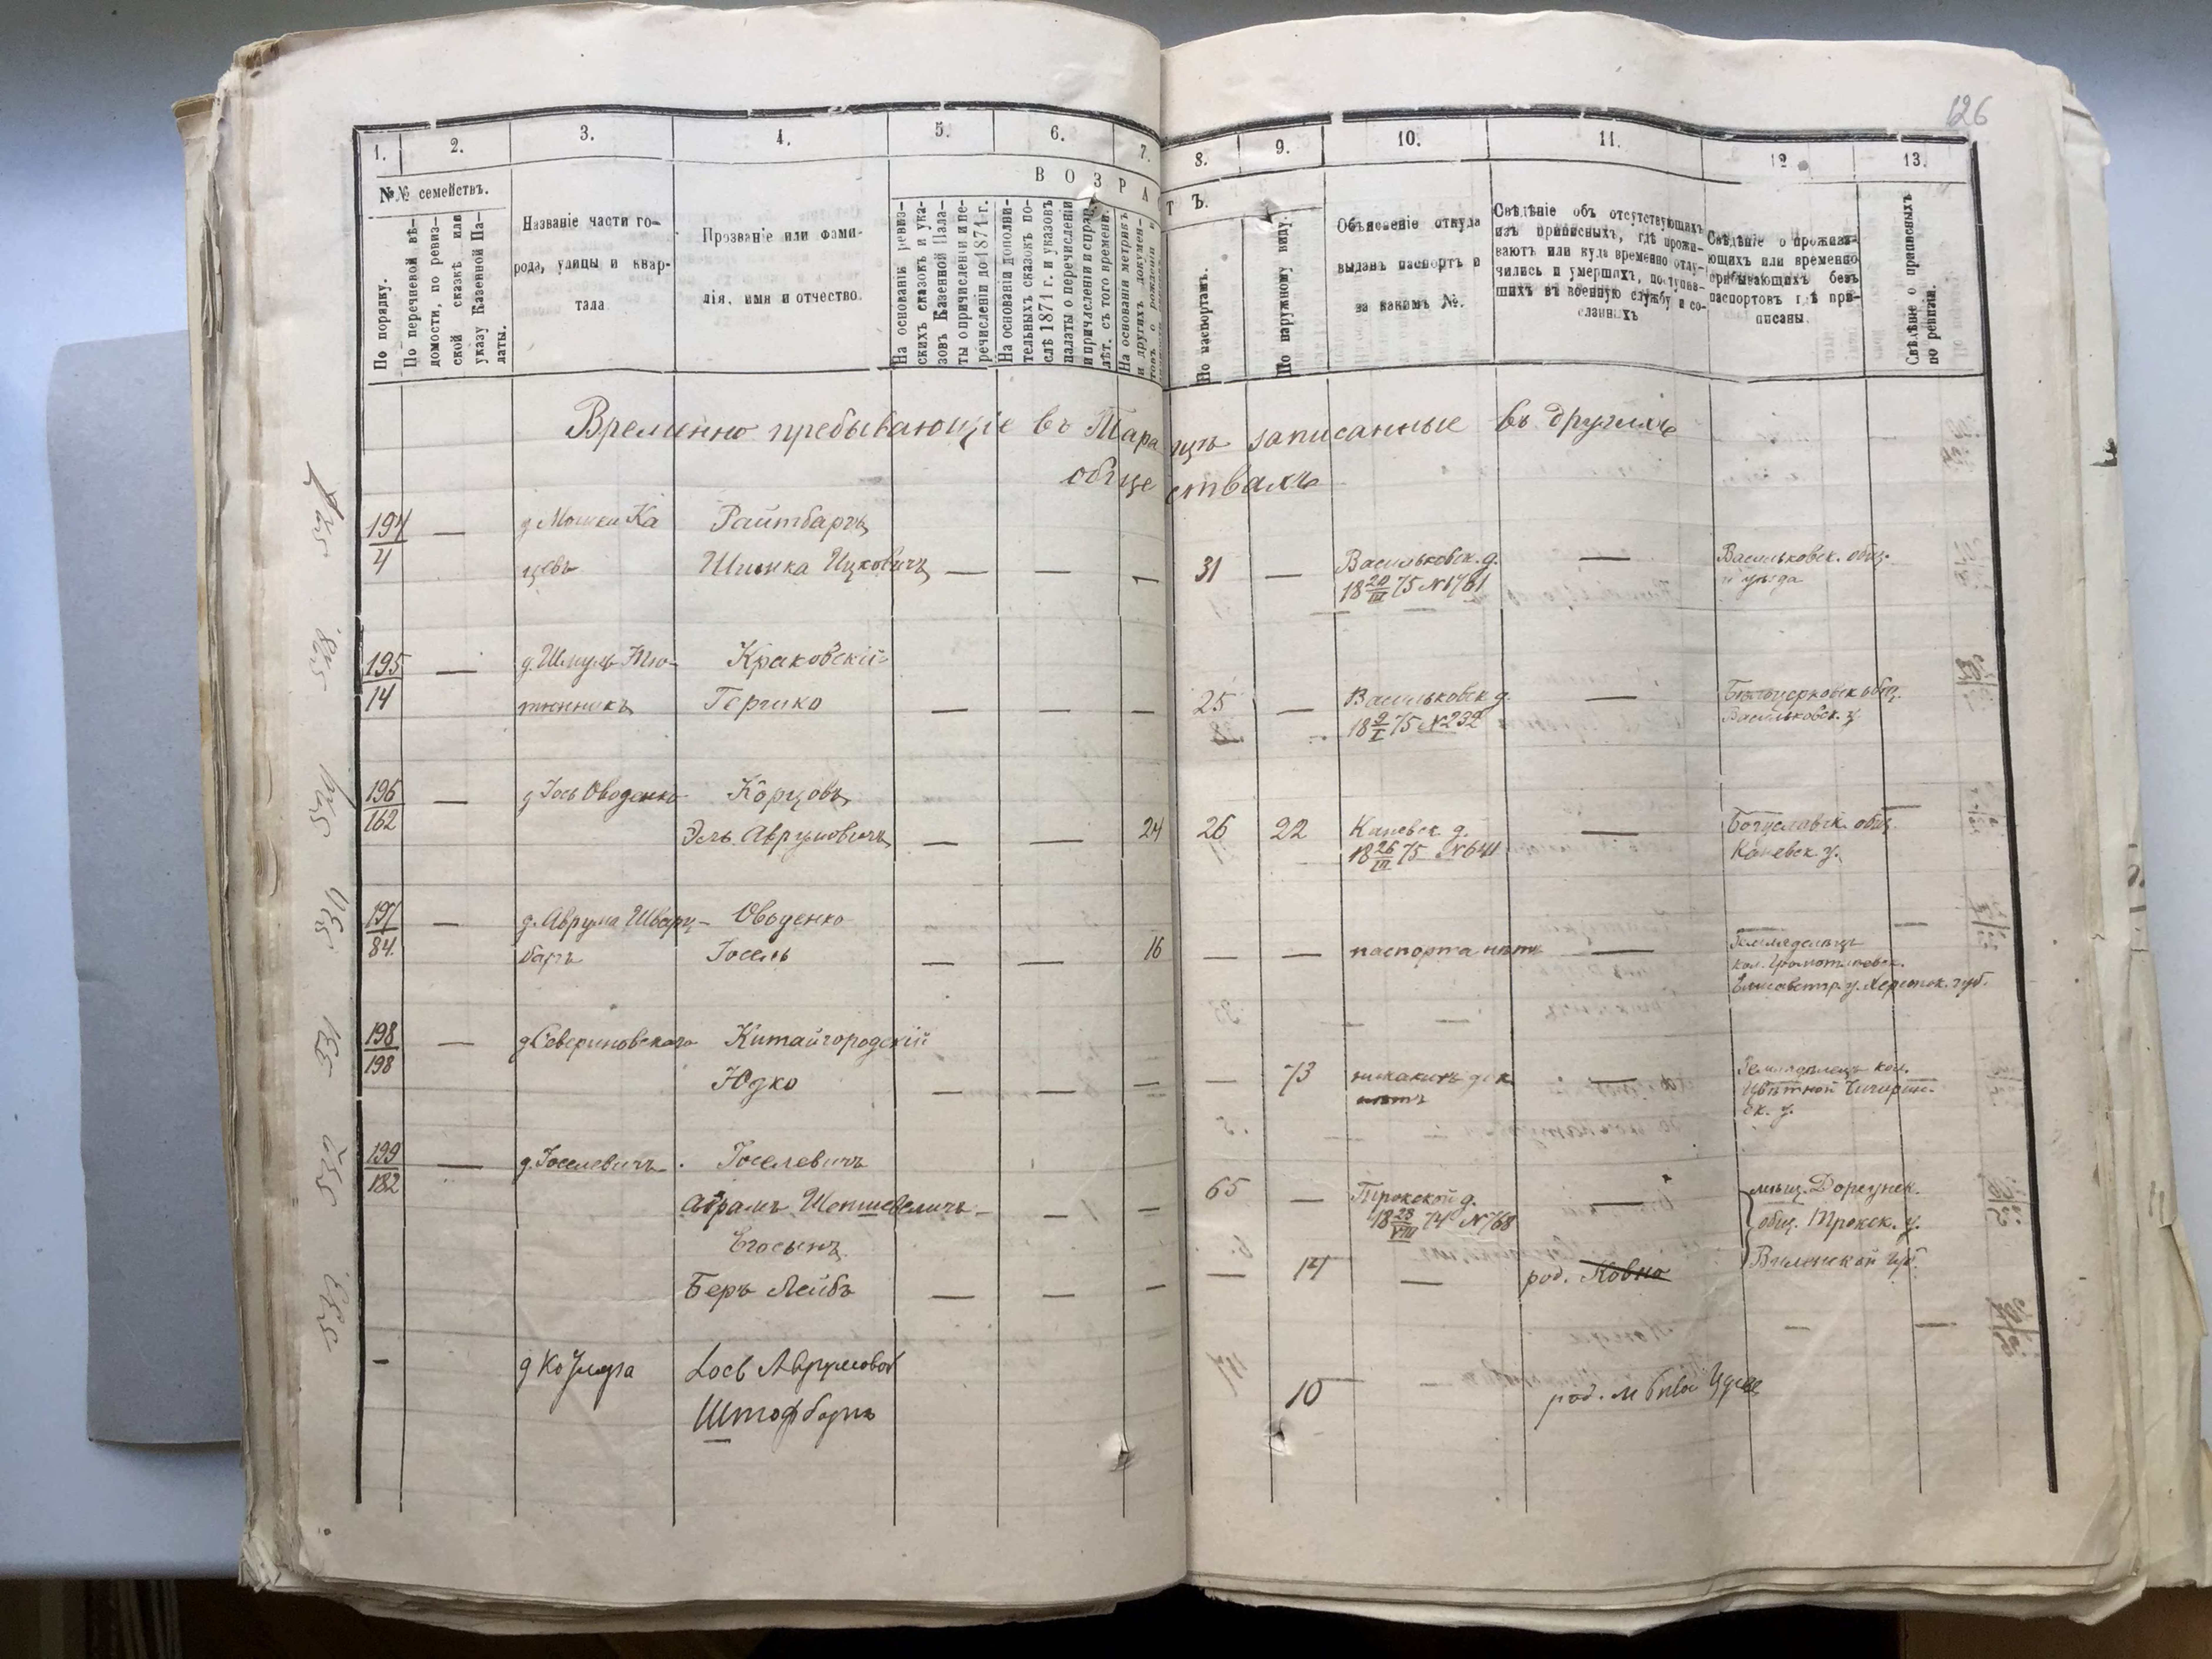 126
1. 2. 3. 4. 5. 6. 7. 8. 9. 10. 11. 12 13.
№№ семействъ.
По порядку.
По перечневой вѣ-
домости, по ревиз-
ской сказкѣ или
указу Казенной Па-
латы.
Названіе части го-
рода, улицы и квар-
тала
Прозваніе или фами-
лія, имя и отчество.
ВОЗРАСТЪ.
На основаніи ревиз-
скихъ сказокъ и ука-
зовъ Казенной Пала-
ты о причисленіи и пе-
речисленіи до 1871 г.
На основаніи дополни-
тельныхъ сказокъ по-
слѣ 1871 г. и указовъ
палаты о перечисленіи
и причисленіи и справ.
лѣт. съ того времени.
На основаніи метрикъ
и другихъ докумен-
товъ о рожденіи и
По паспортамъ.
По наружному виду.
Объясненіе откуда
выданъ паспортъ и
за какимъ №.
Свѣдѣніе объ отсутствующихъ
изъ приписныхъ, гдѣ прожи-
ваютъ или куда временно отлу-
чились и умершихъ, поступив-
шихъ въ военную службу и со-
сланныхъ
Свѣдѣніе о прожива-
ющихъ или временно
прибывающихъ безъ
паспортовъ гдѣ при-
писаны.
Свѣдѣніе о приписныхъ
по ревизіи.
Временно пребывающіе въ Таращѣ записанные въ другихъ
обществахъ
194 — д. Мошки Ка Райтбаргъ
4 цевъ Шимка Ицковичъ — — — 31 — Васильковск. д. — Васильковск. общ.
18 20/III 75 №1761 и уѣзда
195 — д. Шмуль Тю- Краковскій
14 тюнникъ Гершко — — — 25 — Васильковск д. — Бѣлоцерковск общ.
18 2/I 75 №232 Васильковск. у.
196 — д Іось Оводенко Корцовъ
162 Эль Аврумовичъ — — 24 26 22 Каневск. д. — Богуславск. общ.
18 26/III 75 №641 Каневск у.
197 — д. Аврума Шварц- Оводенко
84. баргъ Іосель — — 16 — — паспорта нѣтъ — Земледѣлецъ
Елисаветгр. у. Херсонск. губ.
198 — д Севериновскаго Китайгородскій
198 Юдко — — — — 73 никакихъ док — Земледѣлецъ кол.
нѣтъ Цвѣтной Чигирин-
ск. у.
199 — д. Іоселевичъ Іоселевичъ
182 Абрамъ Шепшевеличъ — — — 65 — Трокской д. — мѣщ. Дорсунск.
18 28/VIII 74 №768 общ. Трокск. у.
Его сынъ Виленской губ.
Беръ Лейбъ — — — — 14 — род. Ковно
— д Кознера Іось Аврумовой
Штофбаргъ 10 род. м Бѣлой Церкв